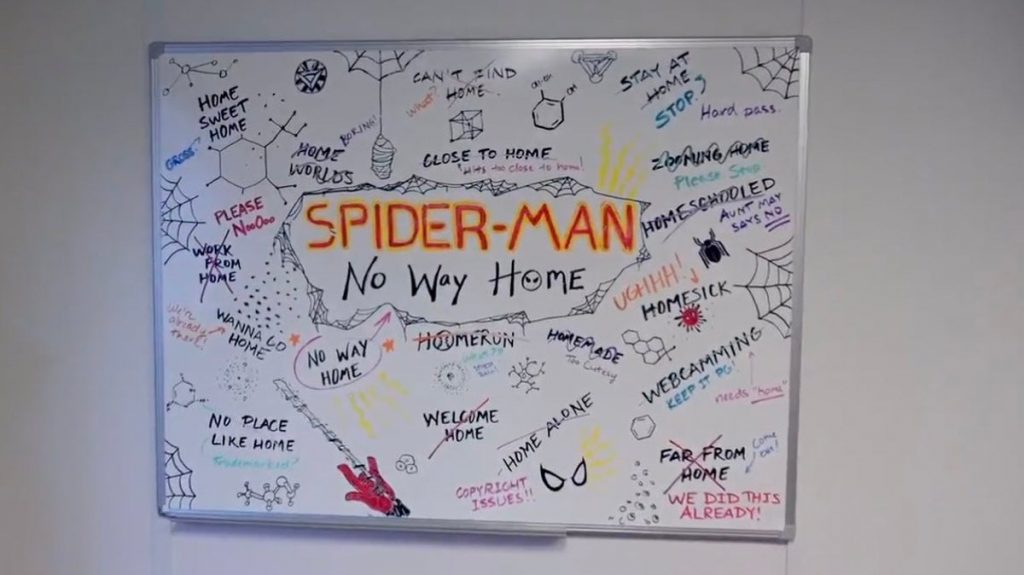 HOME
SWEET
HOME
GROSS
CAN'T FIND
HOME
What?
STAY AT
HOME
STOP.
Hard pass.
BORING!
HOME
WORLDS
CLOSE TO HOME
Hits too close to home!
ZOOMING HOME
Please Stop.
HOMESCHOOLED
AUNT MAY
SAYS NO
PLEASE
NooOoo
WORK
FROM
HOME
SPIDER-MAN
NO WAY HOME
UGHHH!
HOMESICK
We're
already
there!
WANNA GO
HOME
NO WAY
HOME
HOOMERUN
HOMEMADE
Too Cutesy
WEBCAMMING
KEEP IT PG!
needs "home"
NO PLACE
LIKE HOME
Trademarked?
WELCOME
HOME
HOME ALONE
COPYRIGHT
ISSUES!!
FAR FROM
HOME
Come
on!
WE DID THIS
ALREADY!